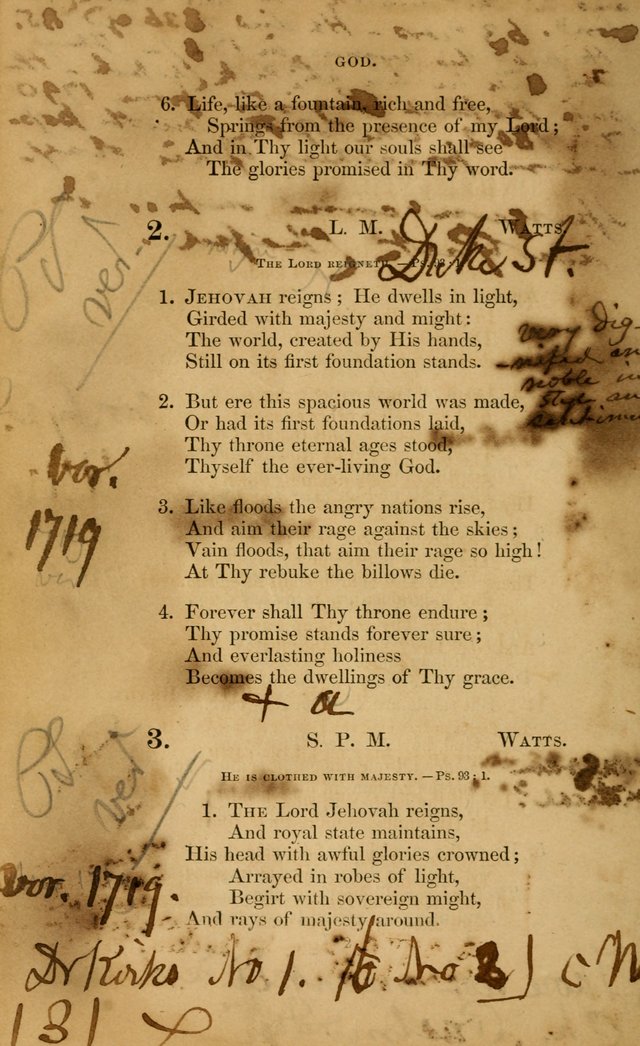 GOD.
6. Life, like a fountain, rich and free,
Springs from the presence of my Lord;
And in Thy light our souls shall see
The glories promised in Thy word.
2. L. M. WATTS.
THE LORD REIGNETH.—Ps. 93: 1.
Duke St.
1. JEHOVAH reigns; He dwells in light,
Girded with majesty and might:
The world, created by His hands,
Still on its first foundation stands.
very dig-
nified an
noble in
style an
sentimen
2. But ere this spacious world was made,
Or had its first foundations laid,
Thy throne eternal ages stood,
Thyself the ever-living God.
vor.
1719
3. Like floods the angry nations rise,
And aim their rage against the skies;
Vain floods, that aim their rage so high!
At Thy rebuke the billows die.
4. Forever shall Thy throne endure;
Thy promise stands forever sure;
And everlasting holiness
Becomes the dwellings of Thy grace.
+ a
Ps
ver
3. S. P. M. WATTS.
HE IS CLOTHED WITH MAJESTY.—Ps. 93: 1.
Ps
ver
1. THE Lord Jehovah reigns,
And royal state maintains,
His head with awful glories crowned;
Arrayed in robes of light,
Begirt with sovereign might,
And rays of majesty around.
vor. 1719.
Dr Kirks No 1. to No 2] c M
131